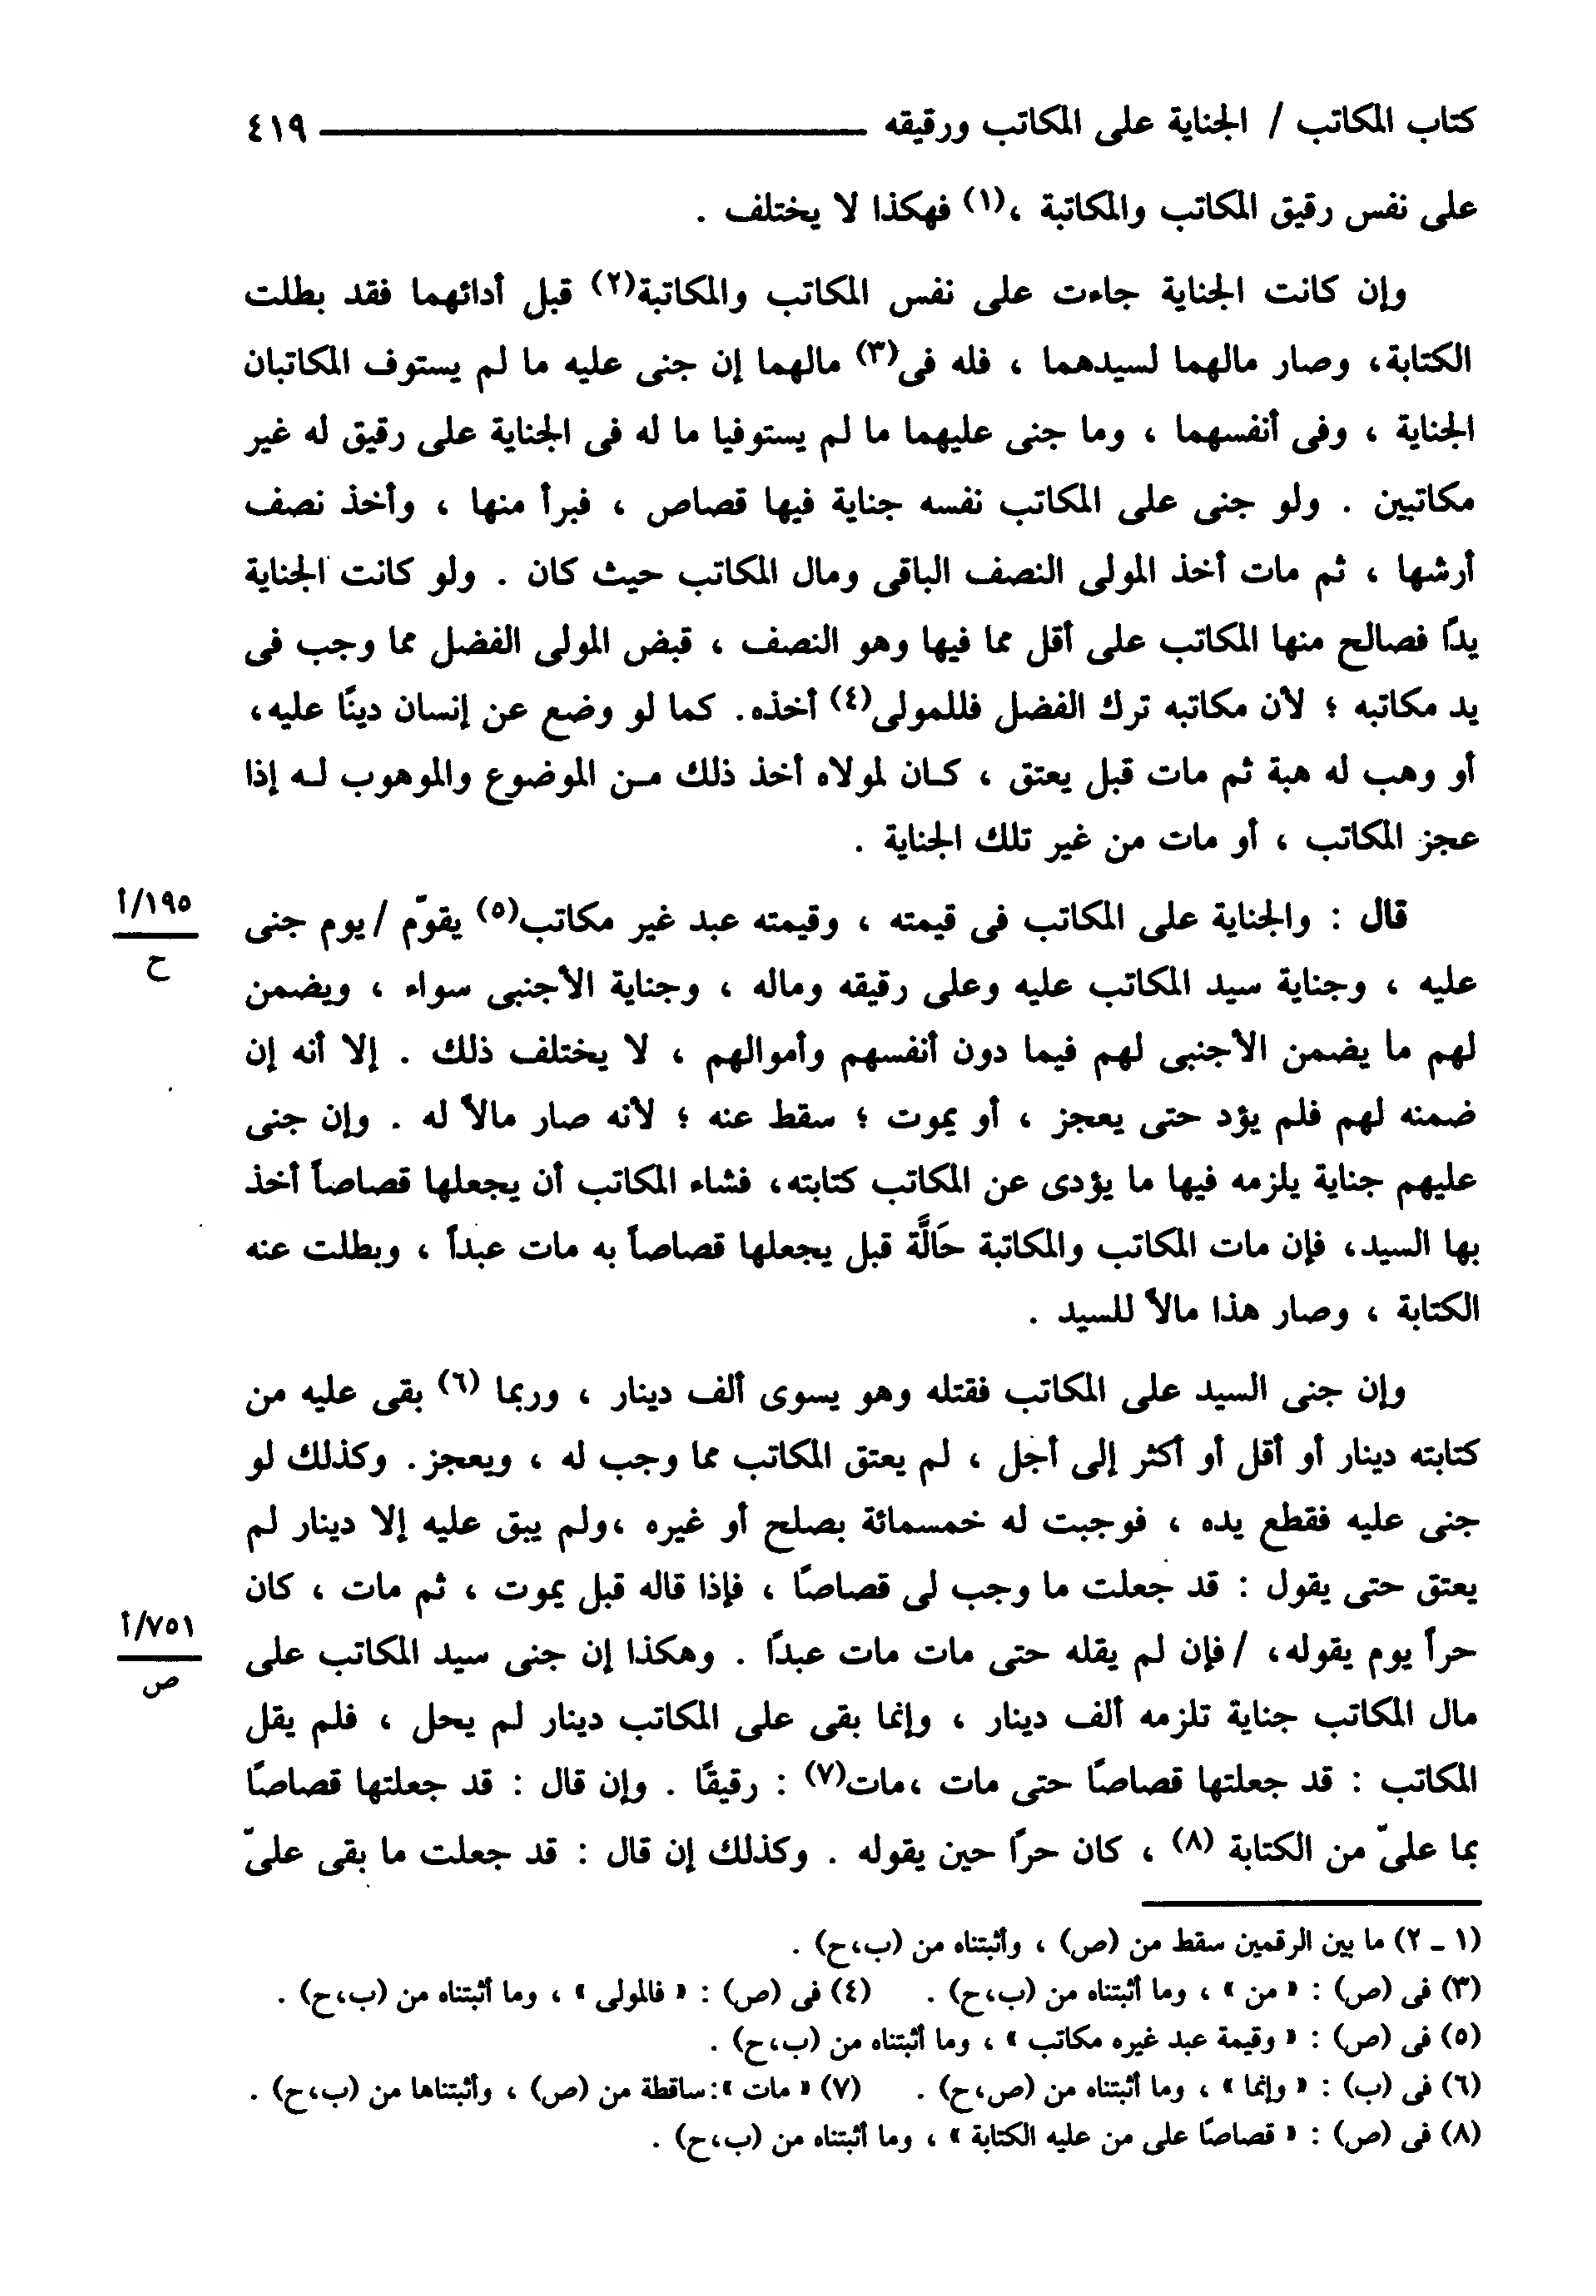 كتاب المكاتب / الجناية على المكاتب ورقيقه ٤١٩
على نفس رقيق المكاتب والمكاتبة ،(١) فهكذا لا يختلف .
وإن كانت الجناية جاءت على نفس المكاتب والمكاتبة(٢) قبل أدائهما فقد بطلت
الكتابة، وصار مالهما لسيدهما ، فله فى(٣) مالهما إن جنى عليه ما لم يستوف المكاتبان
الجناية ، وفى أنفسهما ، وما جنى عليهما ما لم يستوفيا ما له فى الجناية على رقيق له غير
مكاتبين . ولو جنى على المكاتب نفسه جناية فيها قصاص ، فبرأ منها ، وأخذ نصف
أرشها ، ثم مات أخذ المولى النصف الباقى ومال المكاتب حيث كان . ولو كانت الجناية
يدًا فصالح منها المكاتب على أقل مما فيها وهو النصف ، قبض المولى الفضل مما وجب فى
يد مكاتبه ؛ لأن مكاتبه ترك الفضل فللمولى(٤) أخذه. كما لو وضع عن إنسان دينًا عليه،
أو وهب له هبة ثم مات قبل يعتق ، كـان لمولاه أخذ ذلك مـن الموضوع والموهوب لـه إذا
عجز المكاتب ، أو مات من غير تلك الجناية .
قال : والجناية على المكاتب فى قيمته ، وقيمته عبد غير مكاتب(٥) يقوّم / يوم جنى
١٩٥/أ
ح
عليه ، وجناية سيد المكاتب عليه وعلى رقيقه وماله ، وجناية الأجنبى سواء ، ويضمن
لهم ما يضمن الأجنبى لهم فيما دون أنفسهم وأموالهم ، لا يختلف ذلك . إلا أنه إن
ضمنه لهم فلم يؤد حتى يعجز ، أو يموت ؛ سقط عنه ؛ لأنه صار مالاً له . وإن جنى
عليهم جناية يلزمه فيها ما يؤدى عن المكاتب كتابته، فشاء المكاتب أن يجعلها قصاصاً أخذ
بها السيد، فإن مات المكاتب والمكاتبة حَالَّة قبل يجعلها قصاصاً به مات عبداً ، وبطلت عنه
الكتابة ، وصار هذا مالاً للسيد .
وإن جنى السيد على المكاتب فقتله وهو يسوى ألف دينار ، وربما (٦) بقى عليه من
كتابته دينار أو أقل أو أكثر إلى أجل ، لم يعتق المكاتب مما وجب له ، ويعجز. وكذلك لو
جنى عليه فقطع يده ، فوجبت له خمسمائة بصلح أو غيره ،ولم يبق عليه إلا دينار لم
يعتق حتى يقول : قد جعلت ما وجب لى قصاصًا ، فإذا قاله قبل يموت ، ثم مات ، كان
حراً يوم يقوله، / فإن لم يقله حتى مات مات عبدًا . وهكذا إن جنى سيد المكاتب على
٧٥١/أ
ص
مال المكاتب جناية تلزمه ألف دينار ، وإنما بقى على المكاتب دينار لم يحل ، فلم يقل
المكاتب : قد جعلتها قصاصًا حتى مات ،مات(٧) : رقيقًا . وإن قال : قد جعلتها قصاصًا
بما علىّ من الكتابة (٨) ، كان حرًا حين يقوله . وكذلك إن قال : قد جعلت ما بقى علىّ
(١ ـ ٢) ما بين الرقمين سقط من (ص) ، وأثبتناه من (ب،ح) .
(٣) فى (ص) : « من » ، وما أثبتناه من (ب،ح) . (٤) فى (ص) : « فالمولى » ، وما أثبتناه من (ب،ح) .
(٥) فى (ص) : « وقيمة عبد غيره مكاتب » ، وما أثبتناه من (ب،ح) .
(٦) فى (ب) : « وإنما » ، وما أثبتناه من (ص،ح) . (٧) « مات »: ساقطة من (ص) ، وأثبتناها من (ب،ح) .
(٨) فى (ص) : « قصاصًا على من عليه الكتابة » ، وما أثبتناه من (ب،ح) .